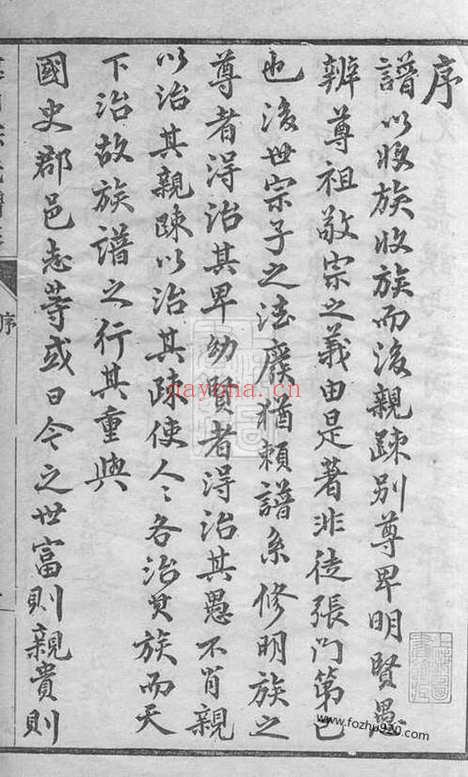 序
譜以收族收族而後親踈別尊卑明賢愚
辨尊祖敬宗之義由是著非徒張門第已
也後世宗子之法廢猶賴譜系修明族之
尊者得治其卑幼賢者得治其愚不肖親
以治其親踈以治其踈使人々各治其族而天
下治故族譜之行其重與
國史郡邑志等或曰今之世富則親貴則
序
nayona.cn
www.fozhu920.com